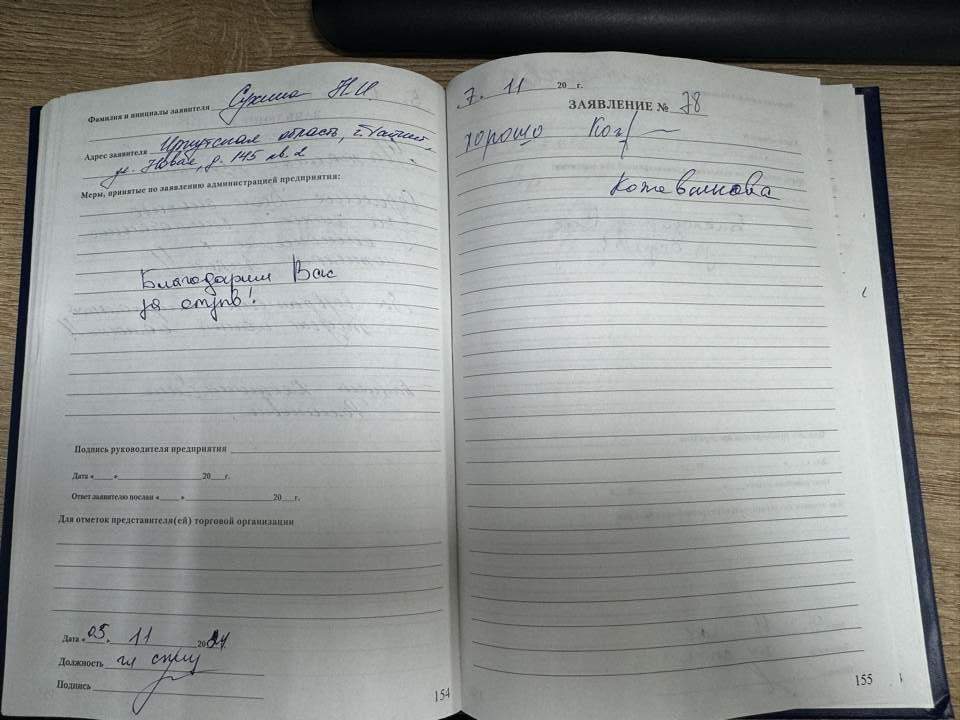 Фамилия и инициалы заявителя Сухина Н.И.
Адрес заявителя Иркутская область,
ул. Новая, д. 145 кв. 2
Меры, принятые по заявлению администрацией предприятия:
Благодарим Вас
за
Подпись руководителя предприятия
Дата «____»____________20___г.
Ответ заявителю послан «____»____________20___г.
Для отметок представителя(ей) торговой организации
Дата «05» 11 2024
Должность
Подпись
154
7. 11 20__г.
ЗАЯВЛЕНИЕ № 78
хорошо
Кожевникова
155